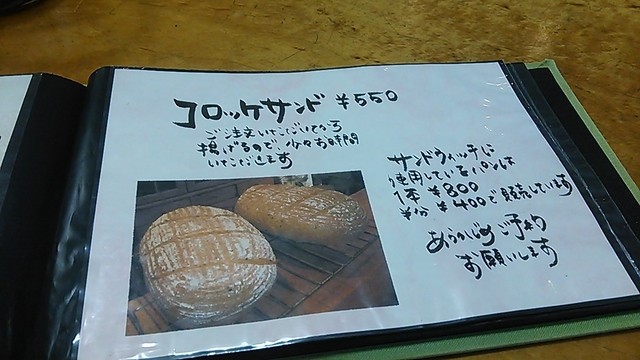 コロッケサンド ¥550
ご注文いただいてから
揚げるので、少々お時間
いただきます
サンドウィッチに
使用しているパンは
1本 ¥800
半分 ¥400で販売しています
あらかじめご予約
お願いします